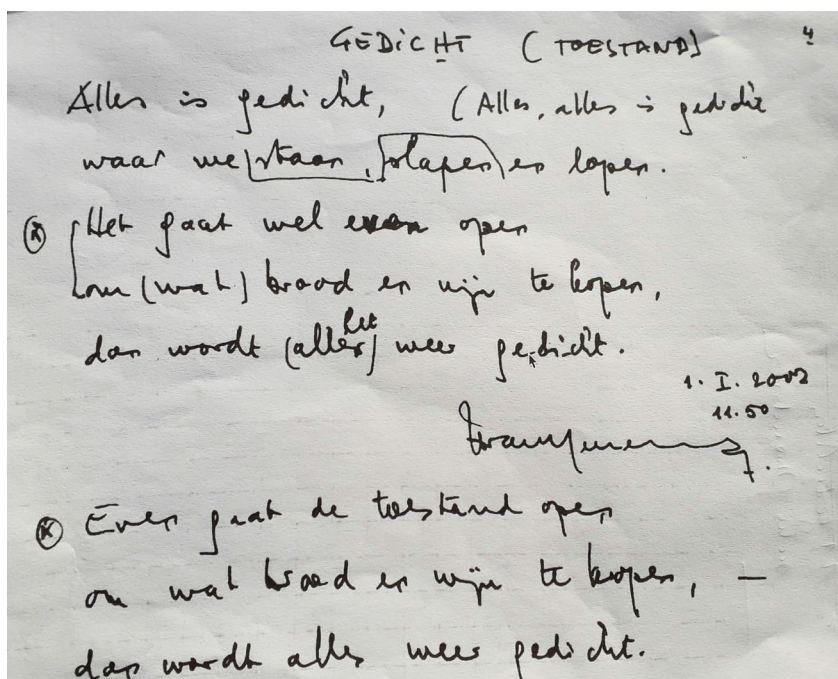 GEDICHT (TOESTAND) 4
Alles is gedicht, (Alles, alles is gedicht
waar we staan, slapen en lopen.
Het gaat wel even open
om (wat) brood en wijn te kopen,
dan wordt (alles) het weer gedicht.
1. I. 2002
11.50
Even gaat de toestand open
om wat brood en wijn te kopen, —
dan wordt alles weer gedicht.